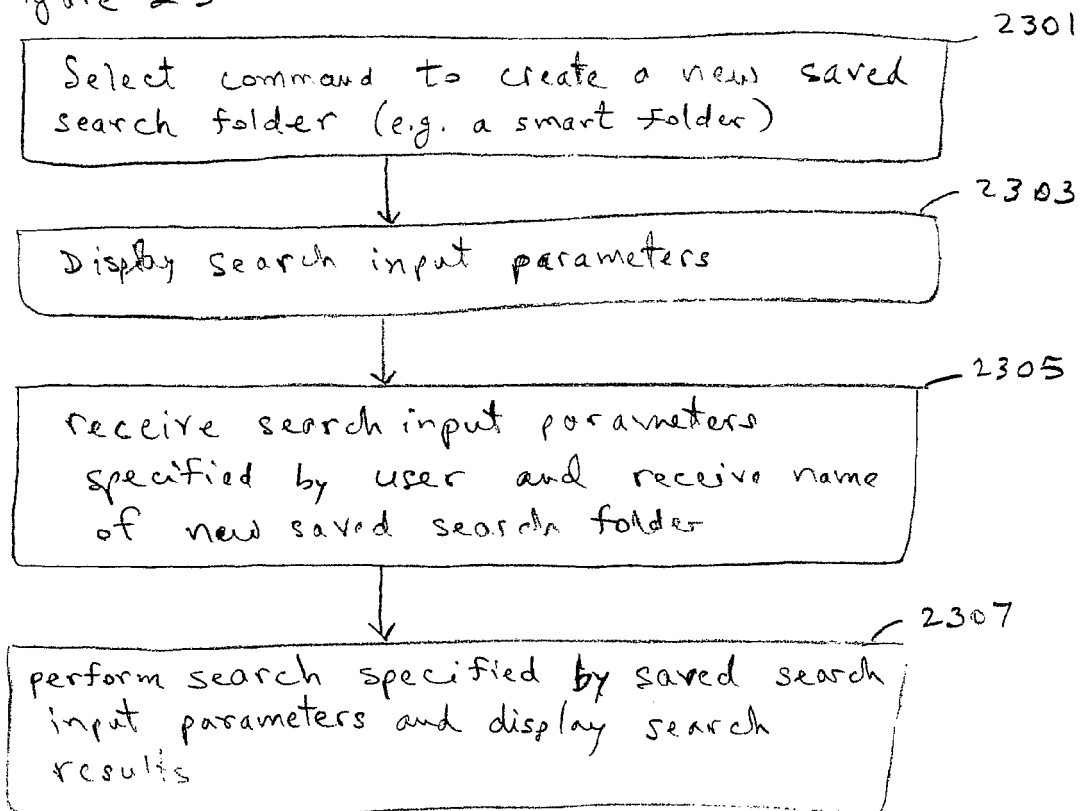 2301
Select command to create a new saved
search folder (e.g. a smart folder)
2303
Display search input parameters
2305
receive search input parameters
specified by user and receive name
of new saved search folder
2307
perform search specified by saved search
input parameters and display search
results